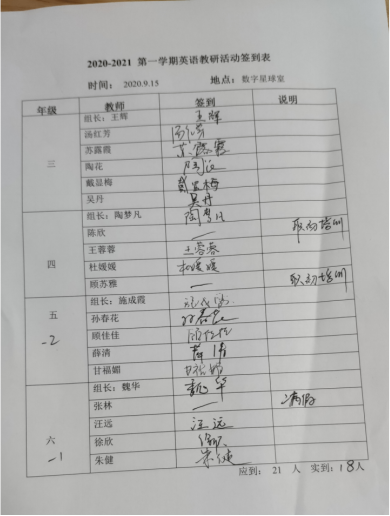 2020-2021 第一学期英语教研活动签到表
时间: 2020.9.15 地点: 数字星球室
年级 教师 签到 说明
三
组长: 王辉 王辉
汤红芳 汤红芳
苏露霞 苏露霞
陶花 陶花
戴显梅 戴显梅
吴丹 吴丹
四
组长: 陶梦凡 陶梦凡
陈欣 — 职初培训
王蓉蓉 王蓉蓉
杜媛媛 杜媛媛
顾苏雅 — 职初培训
五 -2
组长: 施成霞 施成霞
孙春花 孙春花
顾佳佳 顾佳佳
薛清 薛清
甘福媚 甘福媚
六 -1
组长: 魏华 魏华
张林 — 请假
汪远 汪远
徐欣 徐欣
朱健 朱健
应到: 21 人 实到: 18人